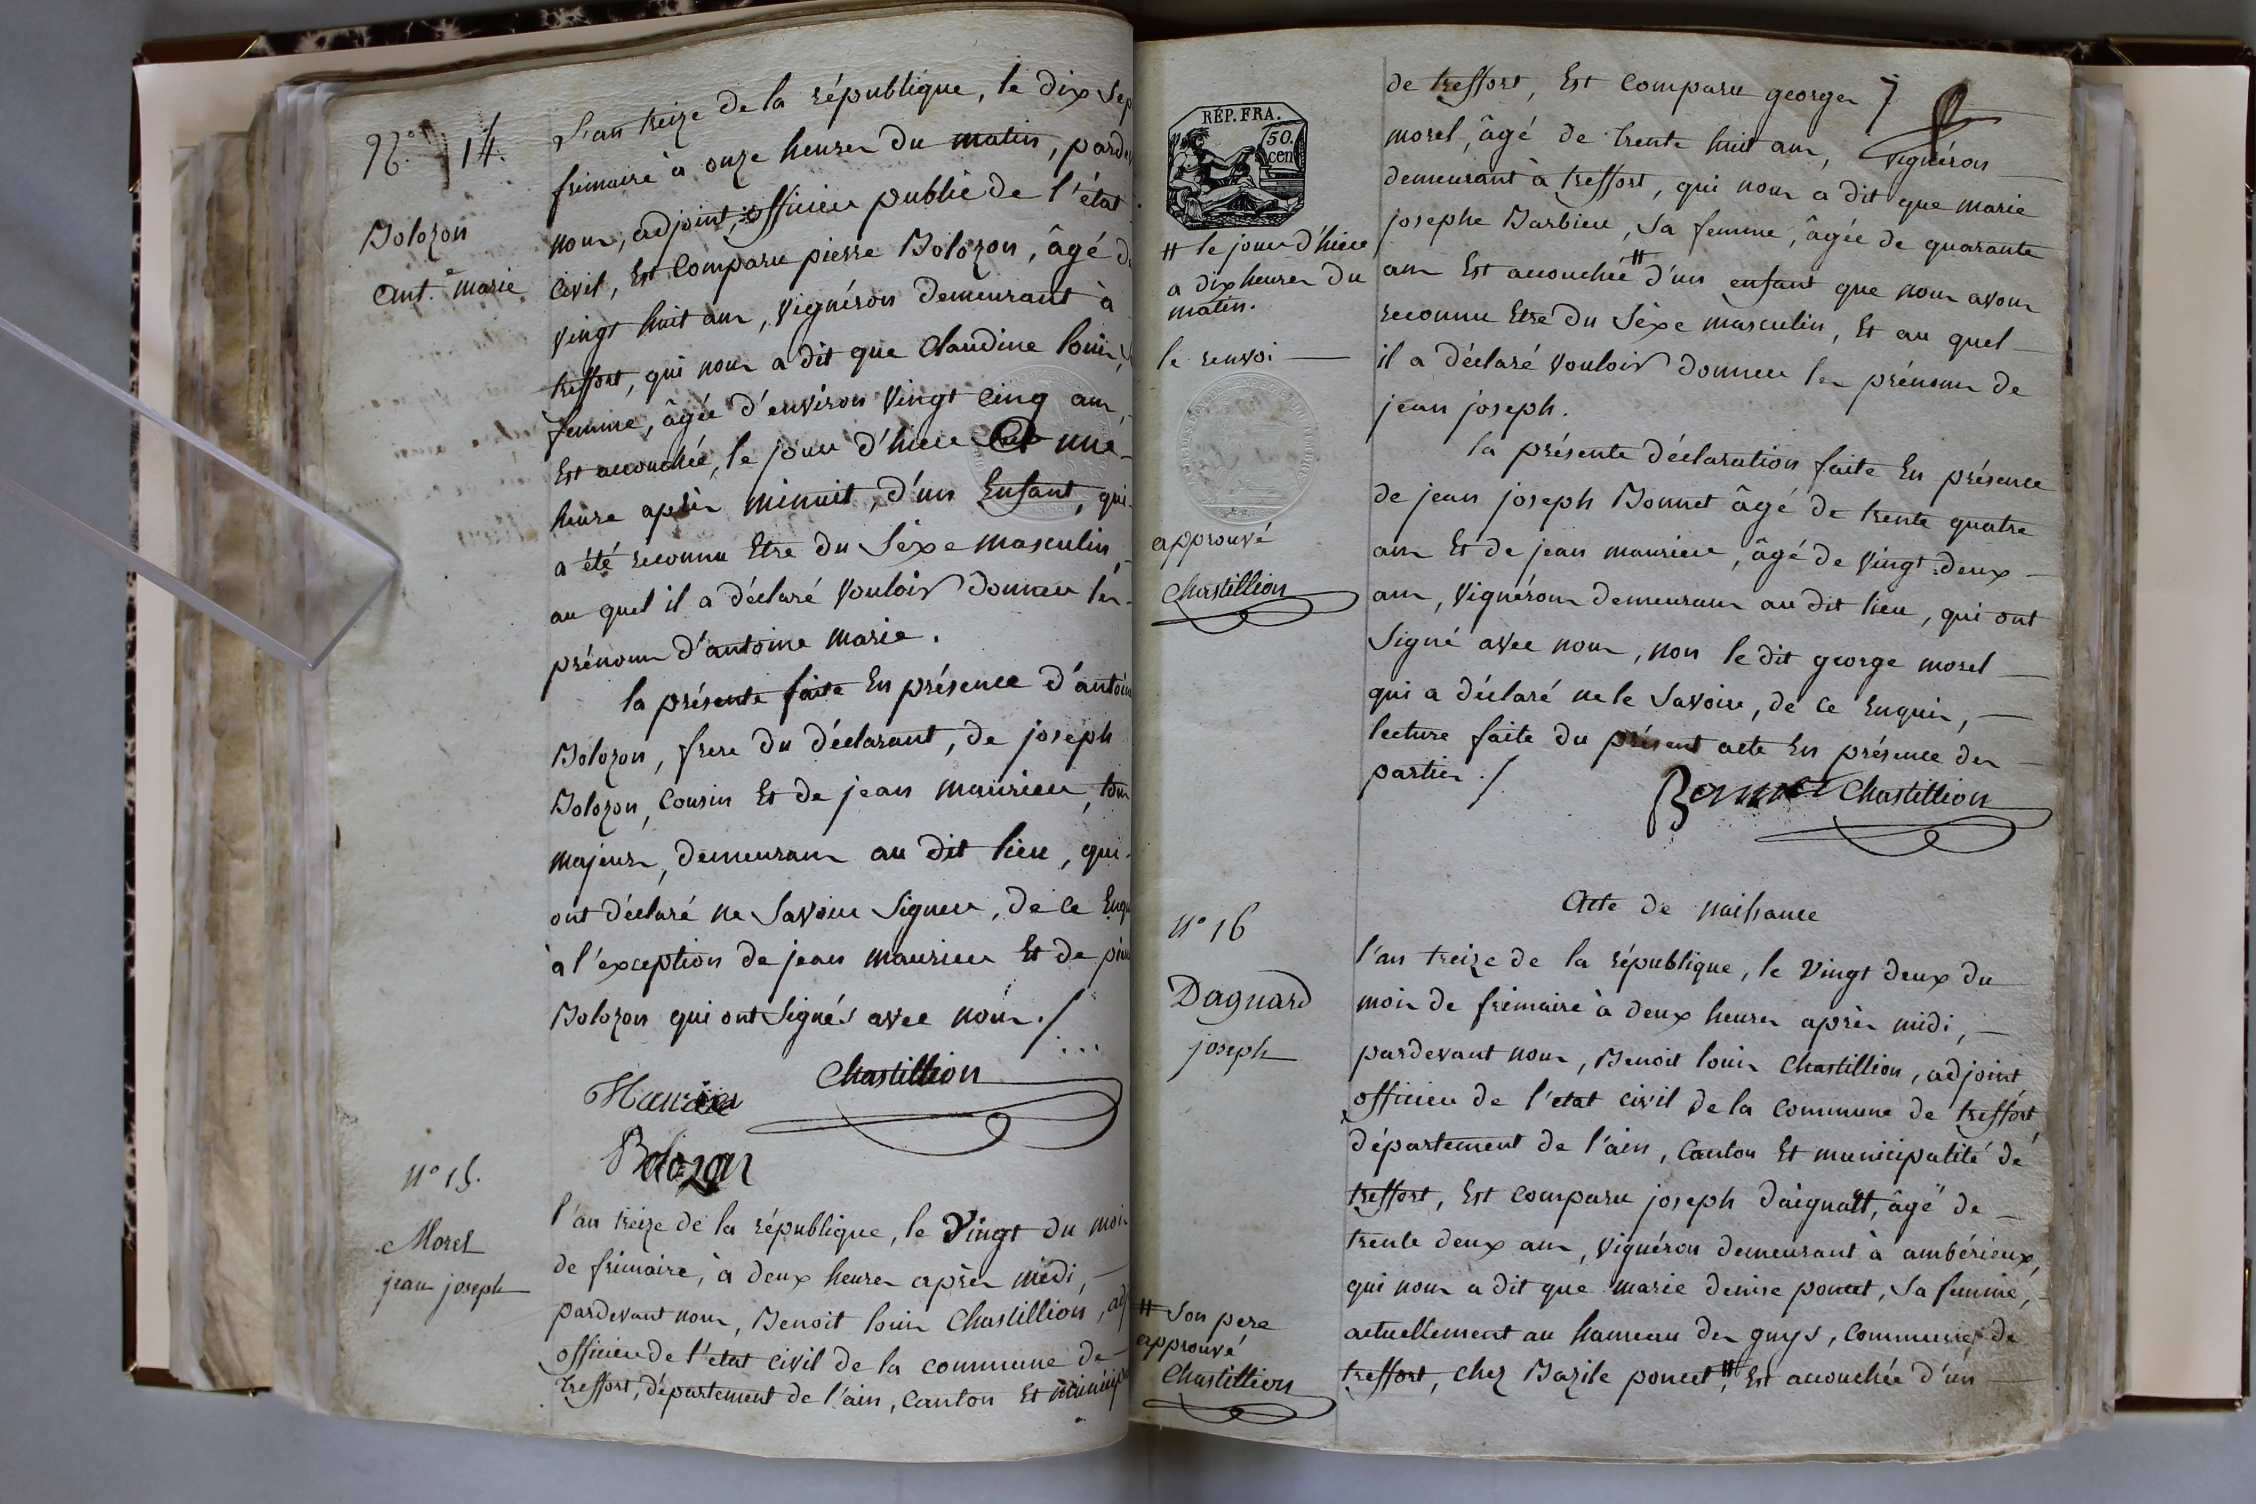 N.° 14.
Bolozon
Ant.e marie
L'an treize de la république, le dix Sep
frimaire à onze heures du matin, pardev
nous, adjoint, officier public de l'état
civil, Est comparu pierre Bolozon, âgé de
vingt huit ans, vignéron demeurant à
treffort, qui nous a dit que Claudine louis, s
femme, âgée d'environ vingt cinq ans,
Est accouchée, le jour d'hier une
heure après minuit, d'un Enfant, qui
a été reconnu Etre du Séxe masculin
au quel il a déclaré vouloir donner les
prénoms d'antoine marie.
la présente faite En présence d'antoine
Bolozon, frere du déclarant, de joseph
Bolozon, cousin Et de jean maurier, tous
majeurs, demeurans au dit lieu, qui
ont déclaré ne Savoir Signer, de ce Enqu
à l'exception de jean maurier Et de pier
Bolozon qui ont Signés avec nous./.
Chastillion
Maurier
Bolozon
N° 15.
Morel
jean joseph
l'an treize de la république, le vingt du mois
de frimaire, à deux heures après midi,
pardevant nous, Benoit louis Chastillion, adj
officier de l'etat civil de la commune de
treffort, département de l'ain, canton Et municip
RÉP. FRA.
50.
cen
# le jour d'hier
a dix heures du
matin.
le renvoi
approuvé
Chastillion
de treffort, Est comparu georges 7
morel, âgé de trente huit ans, vignéron
demeurant à treffort, qui nous a dit que marie
josephe Barbier, Sa femme, âgée de quarante
ans Est accouchée # d'un enfant que nous avons
reconnu Etre du Séxe masculin, Et au quel
il a déclaré vouloir donner les prénoms de
jean joseph.
la présente déclaration faite En présence
de jean joseph Bonnet âgé de trente quatre
ans Et de jean maurier, âgé de vingt deux
ans, vignérons demeurans au dit lieu, qui ont
Signé avec nous, non le dit george morel
qui a déclaré ne le Savoir, de ce Enquis,
lecture faite du présent acte En présence des
parties./.
Bonnet Chastillion
N° 16
Daguard
joseph
Acte de naissance
l'an treize de la république, le vingt deux du
mois de frimaire à deux heures après midi,
pardevant nous, Benoit louis Chastillion, adjoint
officier de l'etat civil de la commune de treffort
département de l'ain, canton Et municipalité de
treffort, Est comparu joseph daignatt, âgé de
trente deux ans, vignéron demeurant à ambérieux,
qui nous a dit que marie denise poncet, Sa femme,
actuellement au hameau des guys, commune de
treffort, chez Bazile poncet #, Est accouchée d'un
# Son pere
approuvé
Chastillion